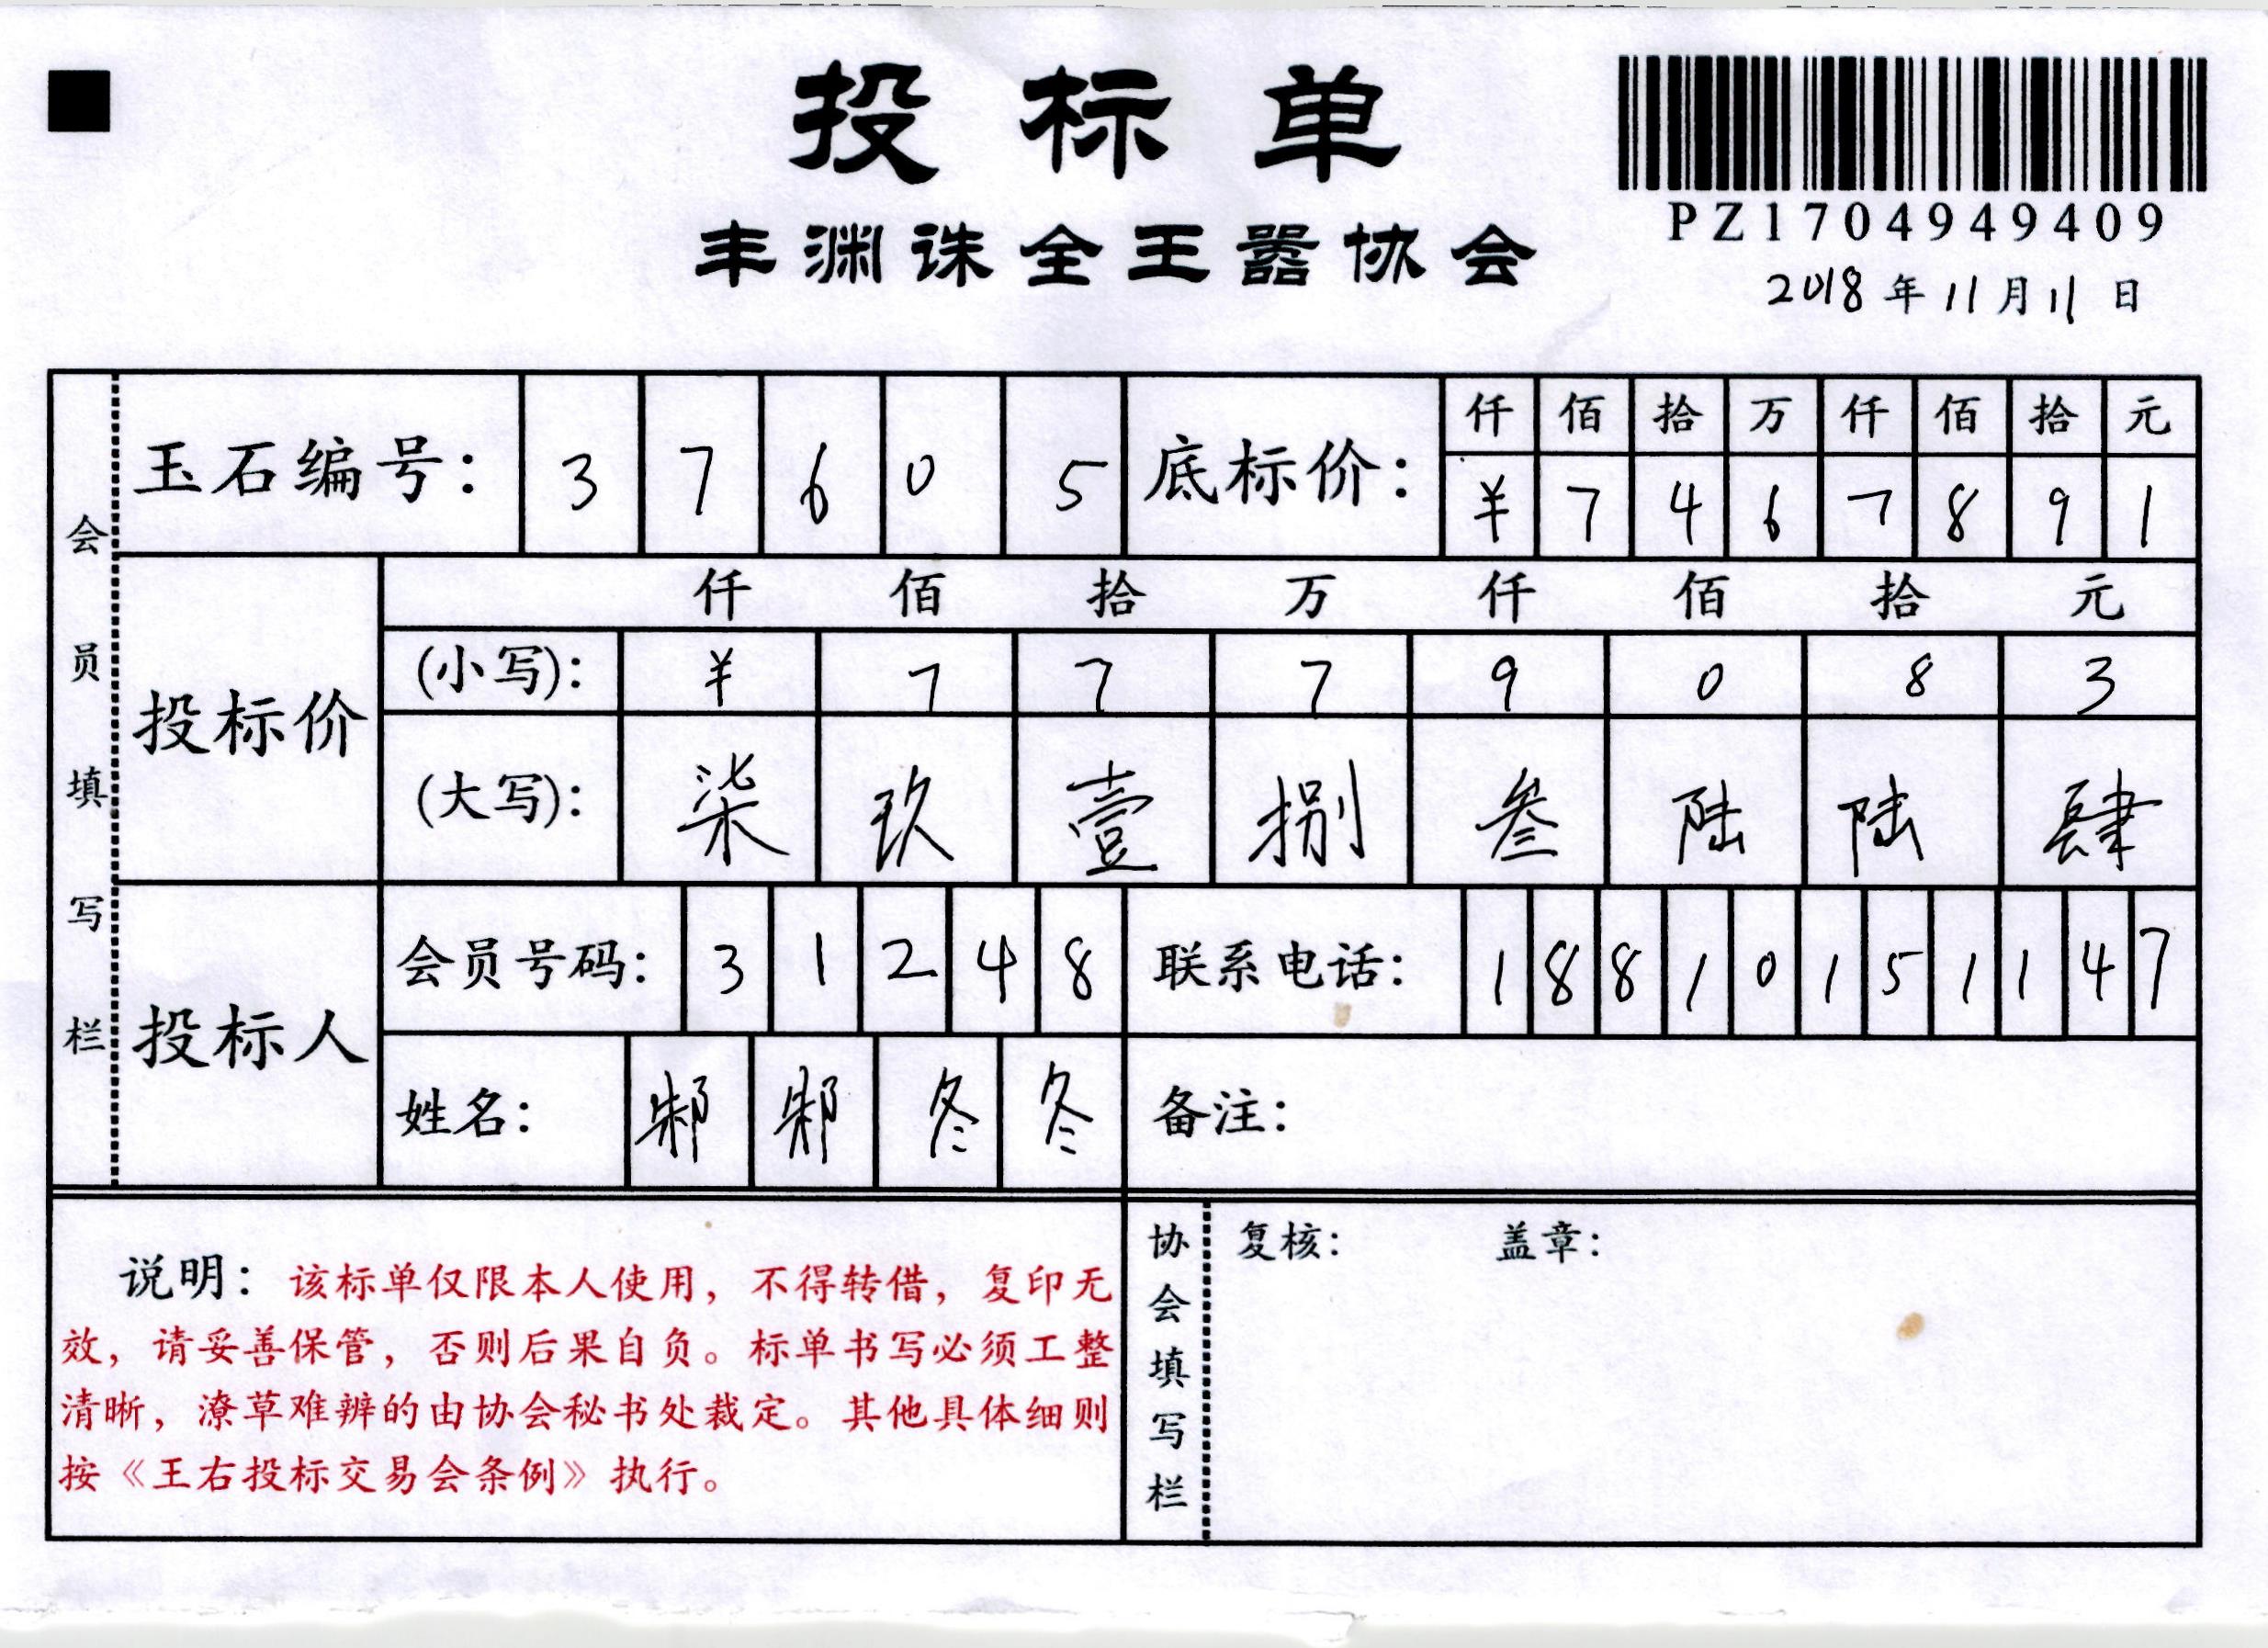 投标单
丰渊诛全王嚣协会
PZ1704949409
2018年11月11日
会员填写栏
玉石编号： 3 7 6 0 5
底标价： 仟 佰 拾 万 仟 佰 拾 元
¥ 7 4 6 7 8 9 1
投标价
仟 佰 拾 万 仟 佰 拾 元
(小写)： ¥ 7 7 7 9 0 8 3
(大写)： 柒 玖 壹 捌 叁 陆 陆 肆
投标人
会员号码： 3 1 2 4 8
联系电话： 1 8 8 1 0 1 5 1 1 4 7
姓名： 邾 邾 冬 冬
备注：
说明：该标单仅限本人使用，不得转借，复印无
效，请妥善保管，否则后果自负。标单书写必须工整
清晰，潦草难辨的由协会秘书处裁定。其他具体细则
按《王右投标交易会条例》执行。
协会填写栏
复核： 盖章：